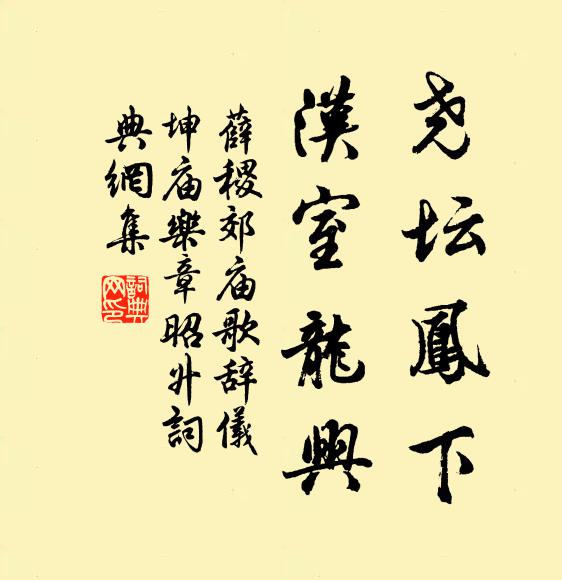 尧坛鳳下
漢室龍興
薛稷郊庙歌辞儀
坤庙樂章昭升詞
典網集
詞典网印